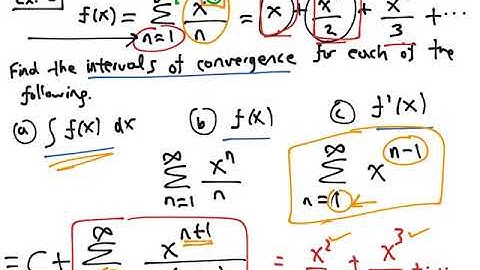 f(x) = ∞Σn=1 xⁿ/n = x + x²/2 + x³/3 + ...
Find the intervals of convergence for each of the
following.
(a) ∫ f(x) dx (b) f(x) (c) f'(x)
∞Σn=1 xⁿ/n ∞Σn=1 xⁿ⁻¹
= C + ∞Σ xⁿ⁺¹ = x² + x³